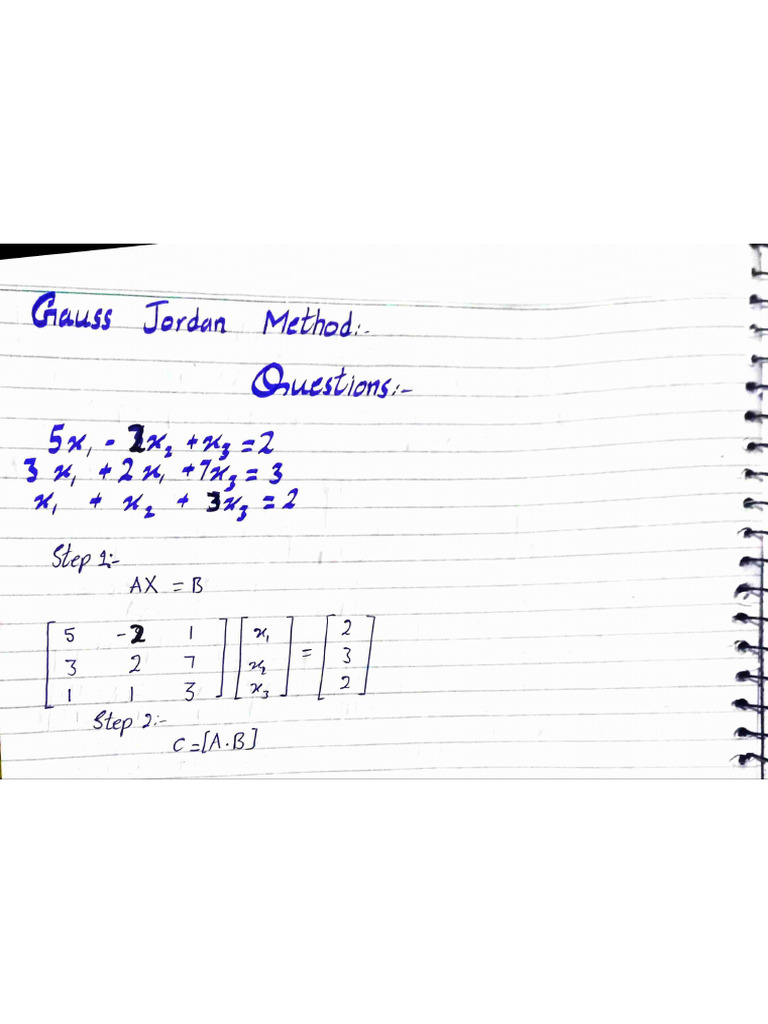 Gauss Jordan Method:-
Questions:-
5x₁ - 2x₂ + x₃ = 2
3x₁ + 2x₁ + 7x₃ = 3
x₁ + x₂ + 3x₃ = 2
Step 1:-
AX = B
[5 -2 1] [x₁] = [2]
[3 2 7] [x₂] [3]
[1 1 3] [x₃] [2]
Step 2:-
C = [A·B]